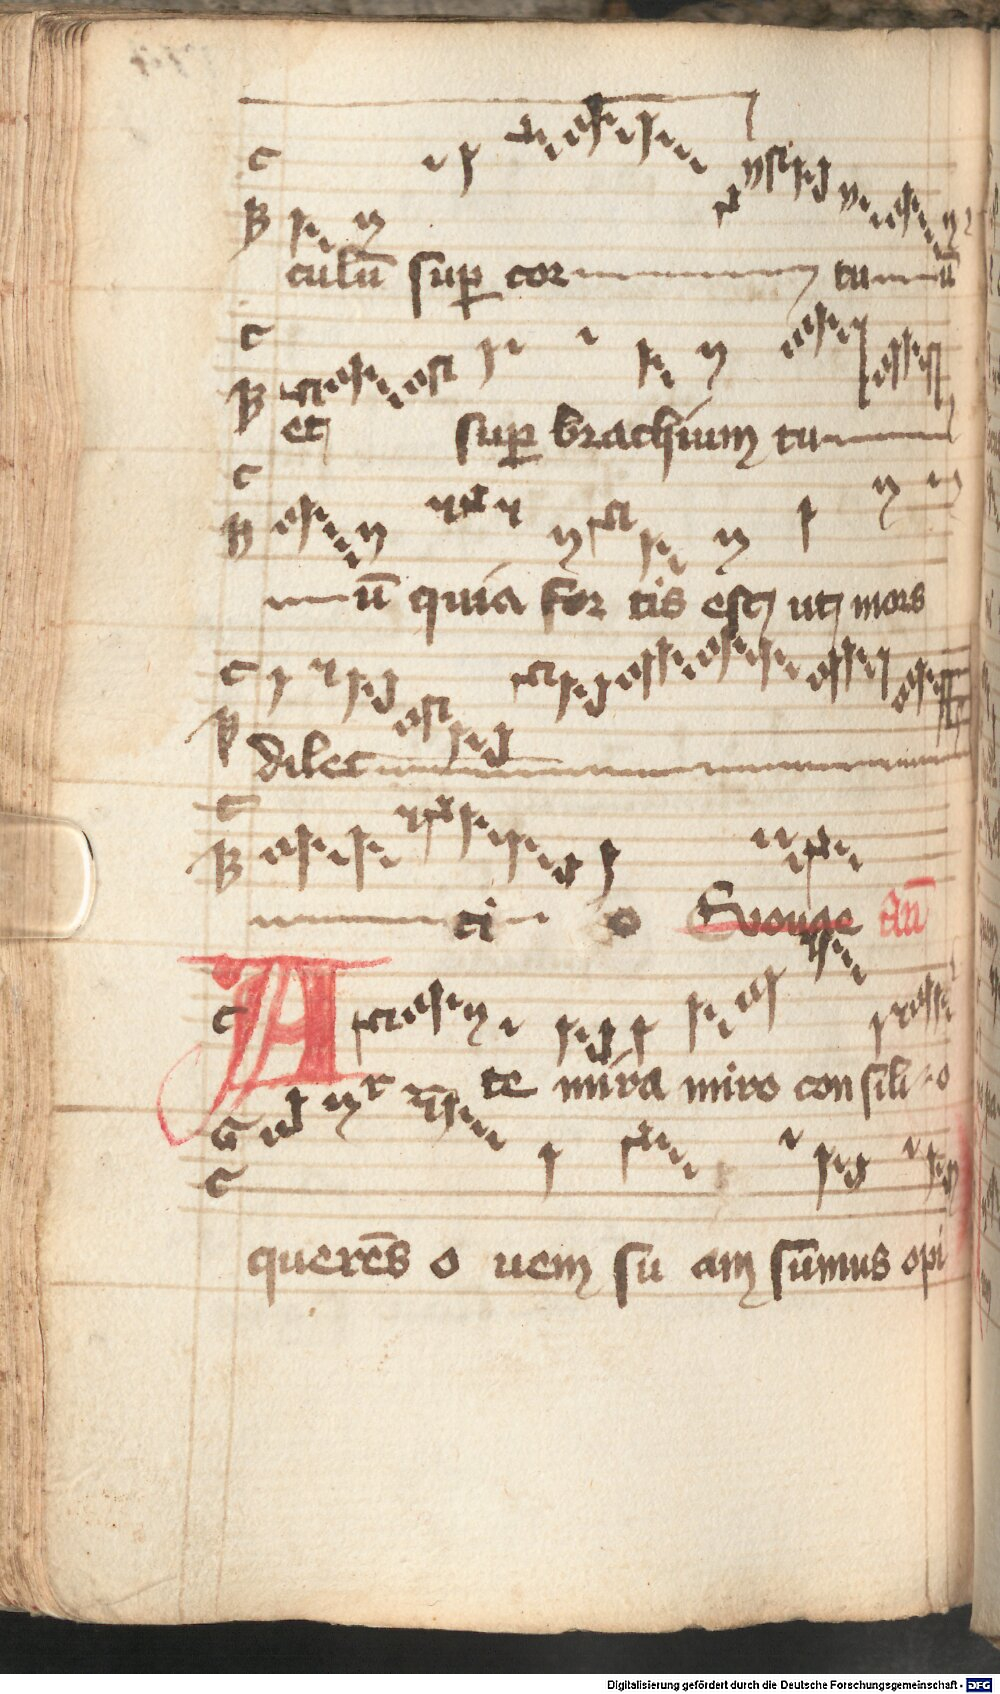 culū sup cor tuū
et sup brachium tu
ū quia for tis est ut mors
dilec
ci o Evouae An̄
A te mira miro con sili o
querēs o uem su am sūmus opi
Digitalisierung gefördert durch die Deutsche Forschungsgemeinschaft - DFG